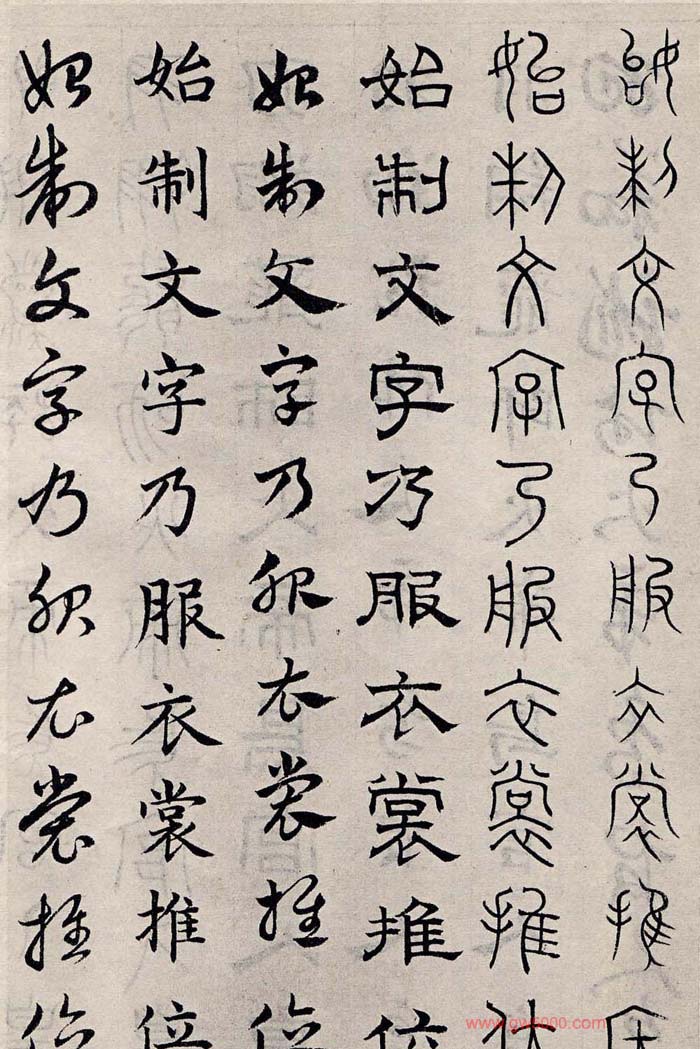 始制文字乃服衣裳推位
始制文字乃服衣裳推位
始制文字乃服衣裳推位
始制文字乃服衣裳推位
始制文字乃服衣裳推位
始制文字乃服衣裳推位
www.gw5000.com